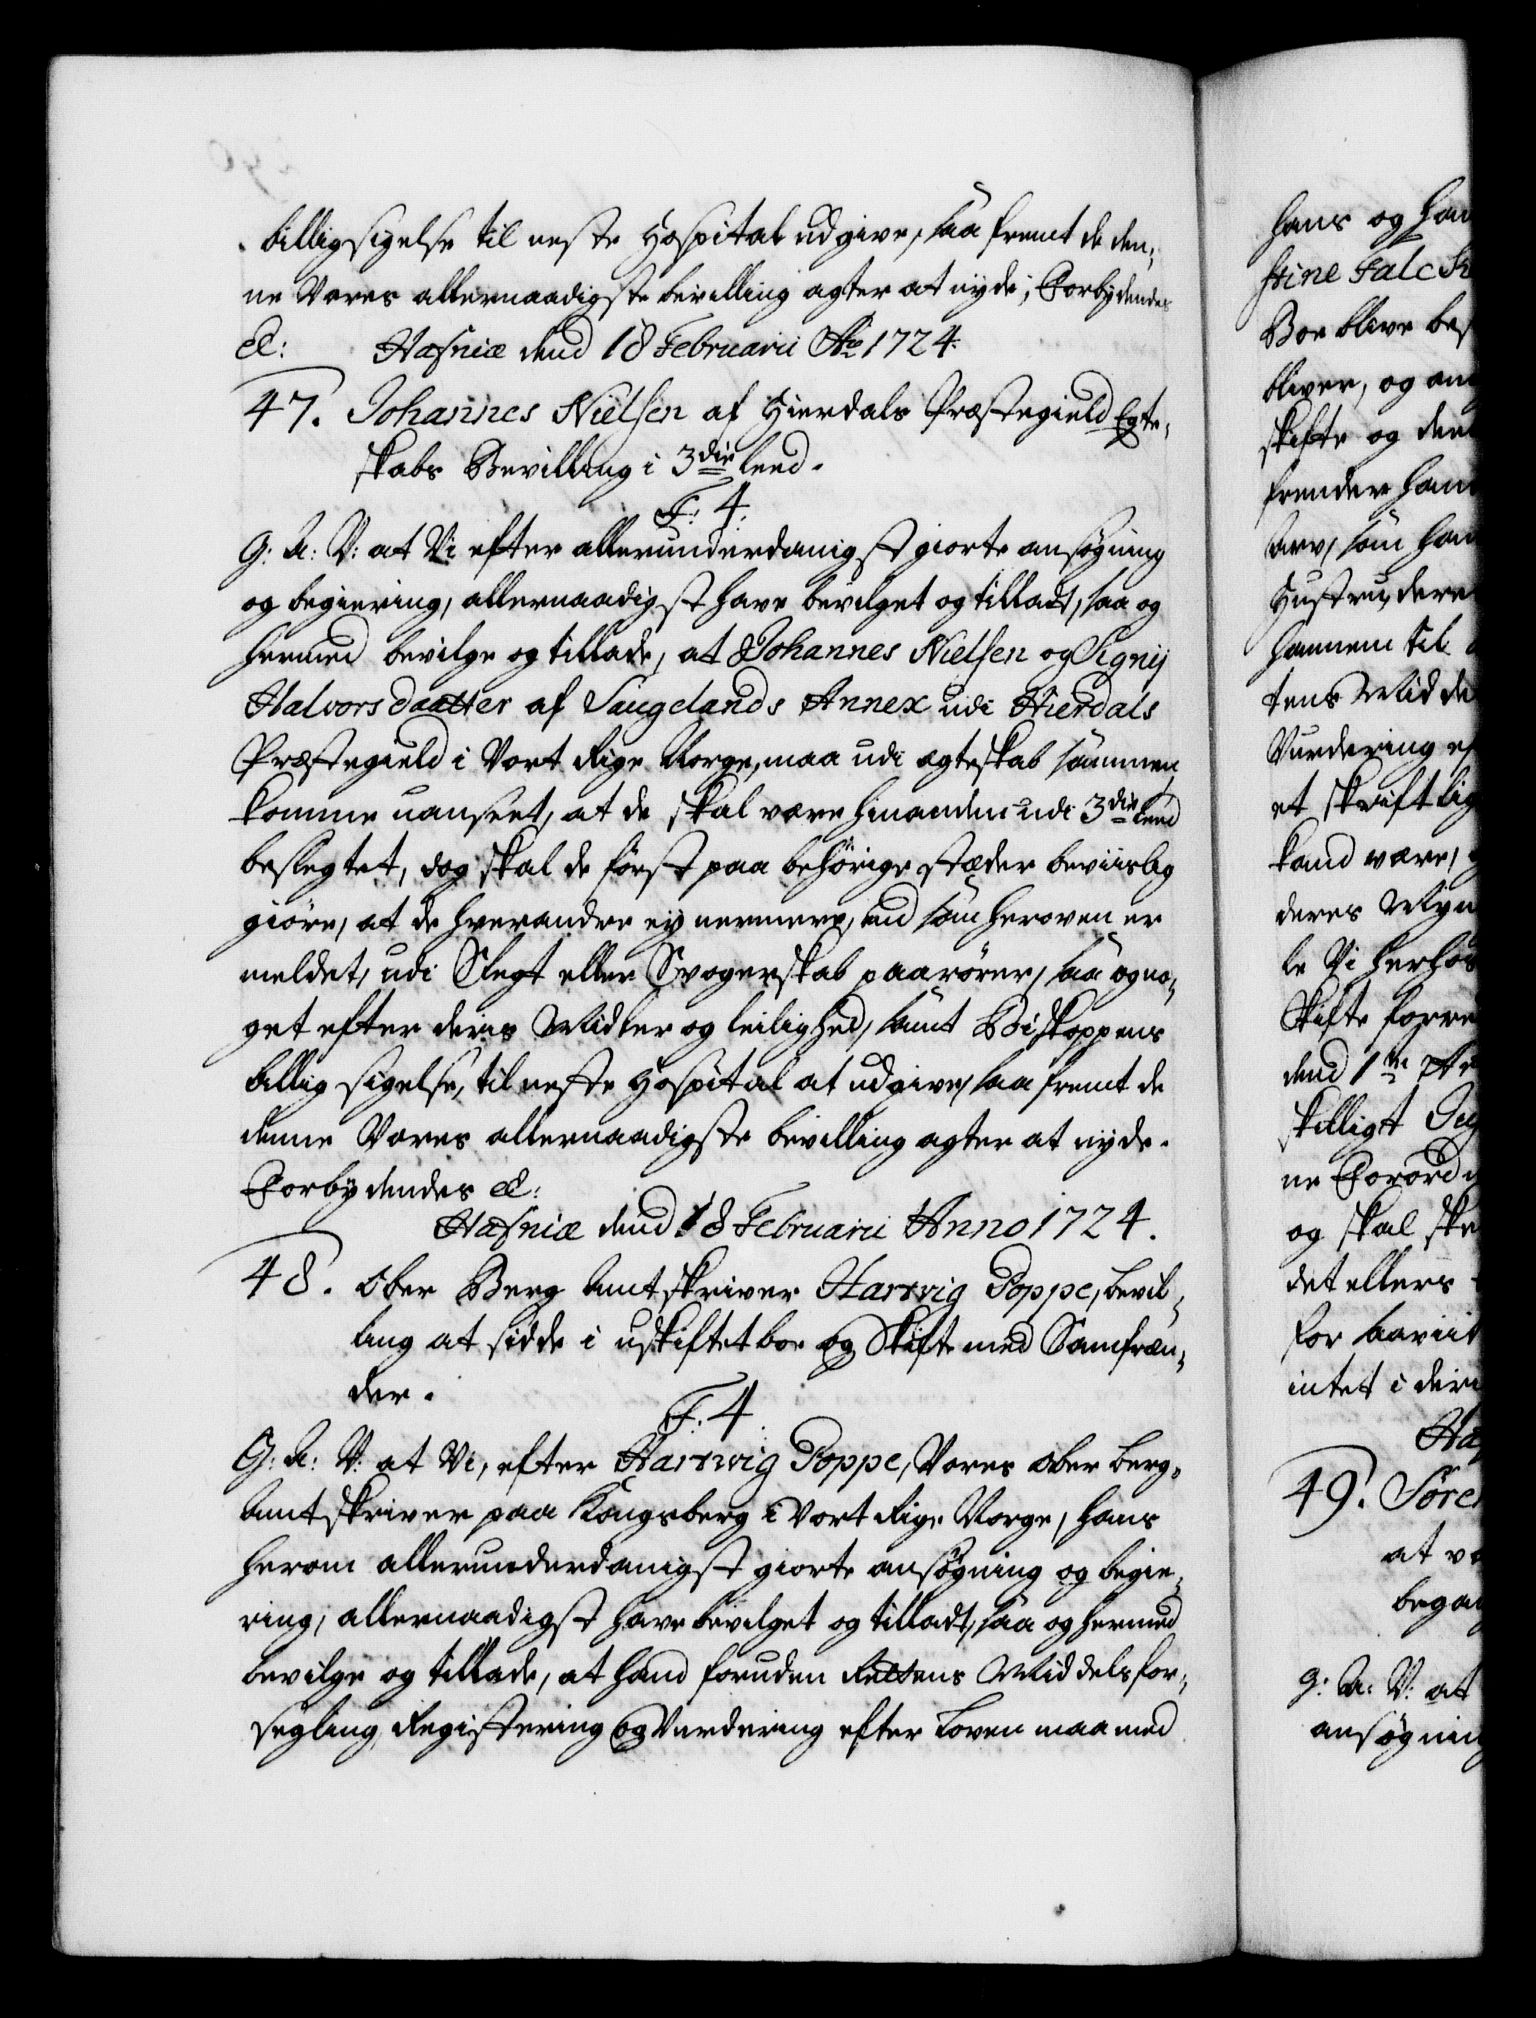 billigsigelse til neste Hospital udgive, saa fremt de den-
ne Vores allernaadigste bevilling agter at nyde; Forbydendes
&c: Hafniæ dend 18 Februarii Ao 1724.
47. Johannes Nielsen af Hierdals Præstegield Egte-
skabs Bevilling i 3die leed.
F: 4.
G: A: V: at Vi efter allerunderdanigst giorte ansøgning
og begiering, allernaadigst have bevilget og tilladt, saa og
hermed bevilge og tillade, at Johannes Nielsen og Signij
Halvorsdaatter af Saugelands Annex udi Hierdals
Præstegield i Vort Rige Norge, maa udi ægteskab sammen
komme uanseet, at de skal være hinanden udi 3die leed
beslegtet, dog skal de først paa behørige stæder beviislig
giøre, at de hverandre ey nermere, end som heroven er
meldet, udi Slegt eller Svogerskab paarører, saa og no-
get efter deris Midler og leilighed, samt Biskoppens
billig sigelse, til neste Hospital at udgive, saa fremt de
denne Vores allernaadigste bevilling agter at nyde.
Forbydendes &c:
Hafniæ dend 18 Februarii Anno 1724.
48. Ober Berg Amtskriver Hartvig Poppe, bevil-
ling at sidde i uskiftet boe og Skifte med Samfræn-
der.
F: 4.
G: A: V: at Vi, efter Hartvig Poppe, Vores Ober Berg-
Amtskriver paa Kongsberg i Vort Rige Norge, hans
herom allerunderdanigst giorte ansøgning og begie-
ring, allernaadigst have bevilget og tilladt, saa og hermed
bevilge og tillade, at hand foruden Rettens Middels for-
segling, Registering og Vurdering efter Loven maa med
hans og
stine Falc
Boe blive
bliver, og
skifte og
frender
Arv, som
Hustru, dere
hannem til
tens Midde
Vurdering
et skriftlig
kand være,
deres Myn
le Vi herhos
Skifte forre
dend 1te
skilligt
ne Forord
og skal ske
det ellers
for
intet i deri
49. Søre
at
bega
G: A: V: at
ansøgning